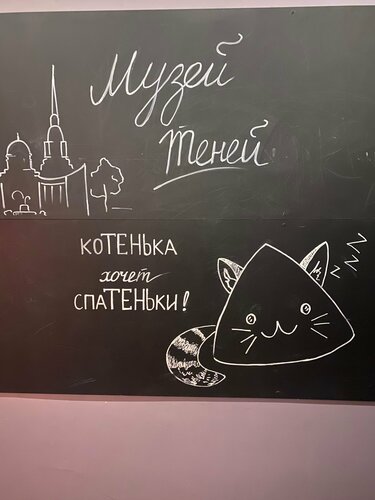 Музей
теней
коТЕНЬКА
хочет
спаТЕНЬКИ!
zzz